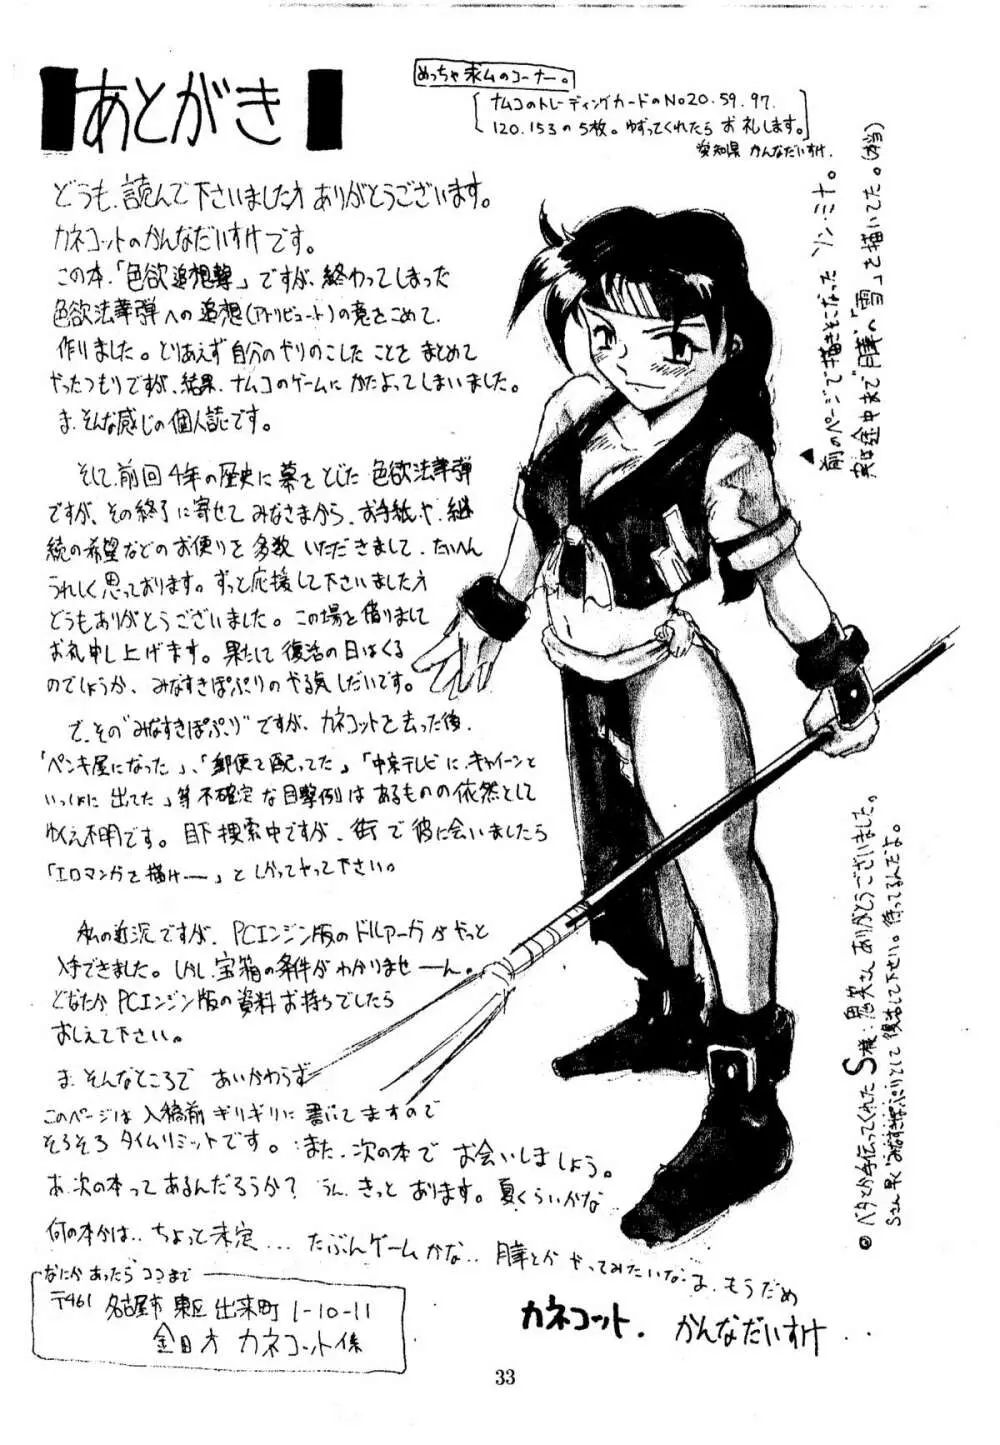 あとがき
めっちゃ求ムのコーナー。
ナムコのトレーディングカードのNo20.59.97.
120.153の5枚。ゆずってくれたら お礼します。
愛知県 かんなだいすけ.
どうも、読んで下さいました方 ありがとうございます。
カネコットのかんなだいすけです。
この本、「色欲追想撃」ですが、終わってしまった
色欲法華弾への追想(アトリビュート)の意をこめて、
作りました。とりあえず自分のやりのこしたことをまとめて
やったつもりですが、結果、ナムコのゲームにかたよってしまいました。
ま、そんな感じの個人誌です。
そして、前回4年の歴史に幕をとじた 色欲法華弾
ですが、その終了に寄せてみなさまから、お手紙や、継
続の希望などのお便りを多数 いただきまして、たいへん
うれしく思っております。ずっと応援して下さいました方
どうもありがとうございました。この場を借りまして
お礼申し上げます。果たして復活の日はくる
のでしょうか、みなすきぽぷりのやる気しだいです。
で、その"みなすきぽぷり"ですが、カネコットを去った後、
「ペンキ屋になった」、「郵便を配ってた」「中京テレビに、キャイーンと
いっしょに出てた」等不確定な目撃例はあるものの依然として
ゆくえ不明です。目下捜索中ですが、街で彼に会いましたら
「エロマンガを描けーー」としかってやって下さい。
私の近況ですが、PCエンジン版のドルアーガがやっと
入手できました。しかし、宝箱の条件がわかりませーーん。
どなたかPCエンジン版の資料お持ちでしたら
おしえて下さい。
ま、そんなところで あいかわらず
このページは入稿前ギリギリに書いてますので
そろそろタイムリミットです。また、次の本で お会いしましょう。
あ、次の本ってあるんだろうか? うん、きっと あります。夏くらいかな
何の本かは.. ちょっと未定... たぶんゲームかな.. 月華とか やってみたいな。ま、もうだめ
カネコット. かんなだいすけ...
なにかあったらココまで
〒461 名古屋市 東区 出来町 1-10-11
金田方 カネコット係
▲前のページで描きそこなった ソン・ミナ。
実は途中まで"月華"の「雪」を描いてた。(本当)
◎ベタとか手伝ってくれたS様:愚笑さんありがとうございました。
Sさん早く"みなすきぽぷり"として復活して下さい。待ってるんだよ。
33